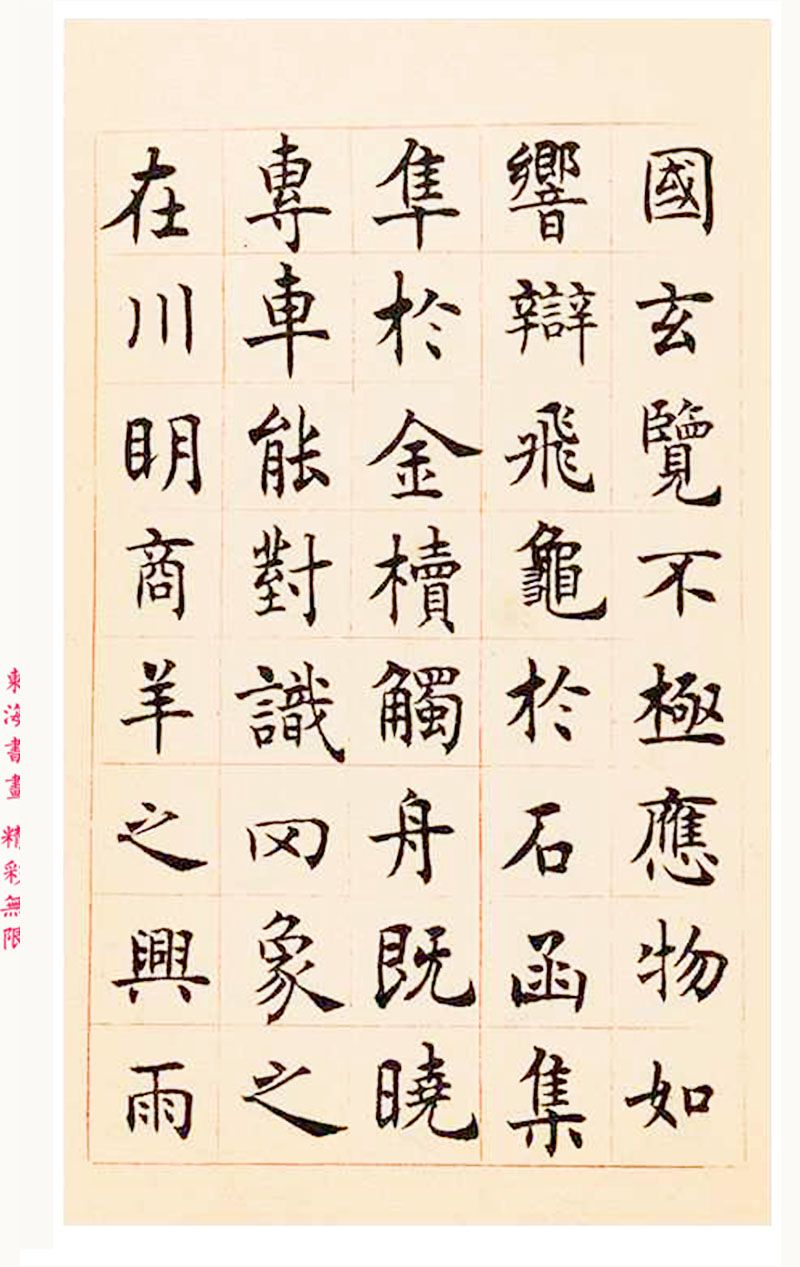 國玄覽不極應物如
響辯飛龜於石函集
隼於金櫝觸舟既曉
專車能對識罔象之
在川眀商羊之興雨
東海書畫 精彩無限